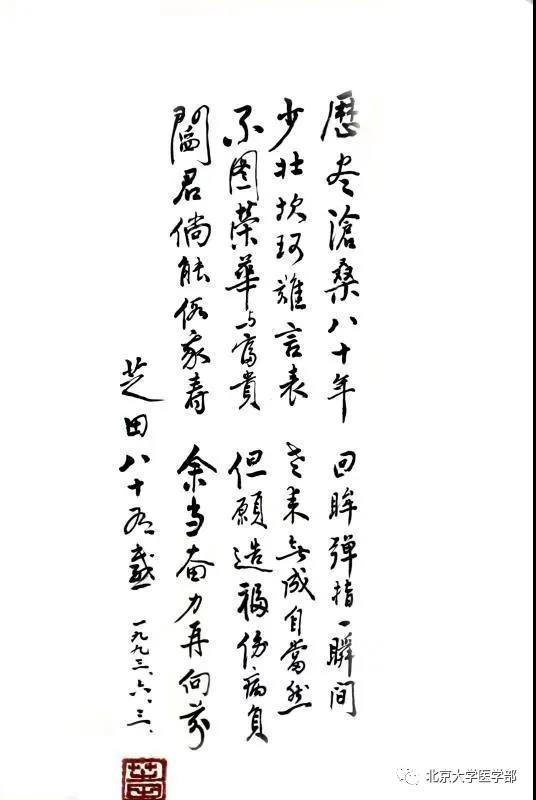 歷尽滄桑八十年 回眸弹指一瞬间
少壮坎坷难言表 老来无成自當然
不图荣華与富貴 但願造福伤病员
阎君倘能假我寿 余当奋力再向前
芝田八十有感 一九九三、六、三、
北京大学医学部